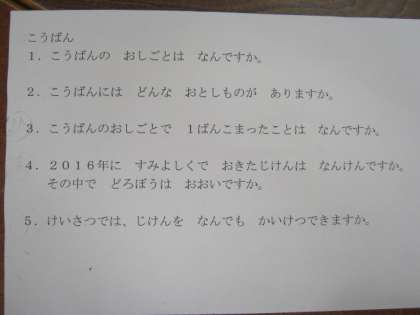 こうばん
1．こうばんの　おしごとは　なんですか。
2．こうばんには　どんな　おとしものが　ありますか。
3．こうばんのおしごとで　1ばんこまったことは　なんですか。
4．2016年に　すみよしくで　おきたじけんは　なんけんですか。
その中で　どろぼうは　おおいですか。
5．けいさつでは、じけんを　なんでも　かいけつできますか。